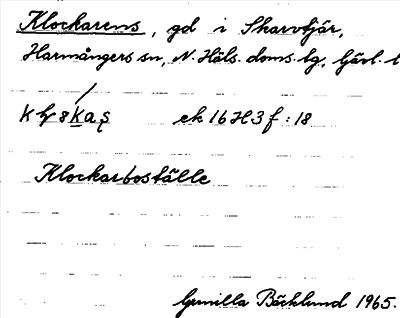 Klockarens, gd i Skarvtjär,
Harmångers sn, N. Häls. doms. lg, Gävl. l
ek 16 H 3 f : 18
Klockarboställe
Gunilla Bäcklund 1965.